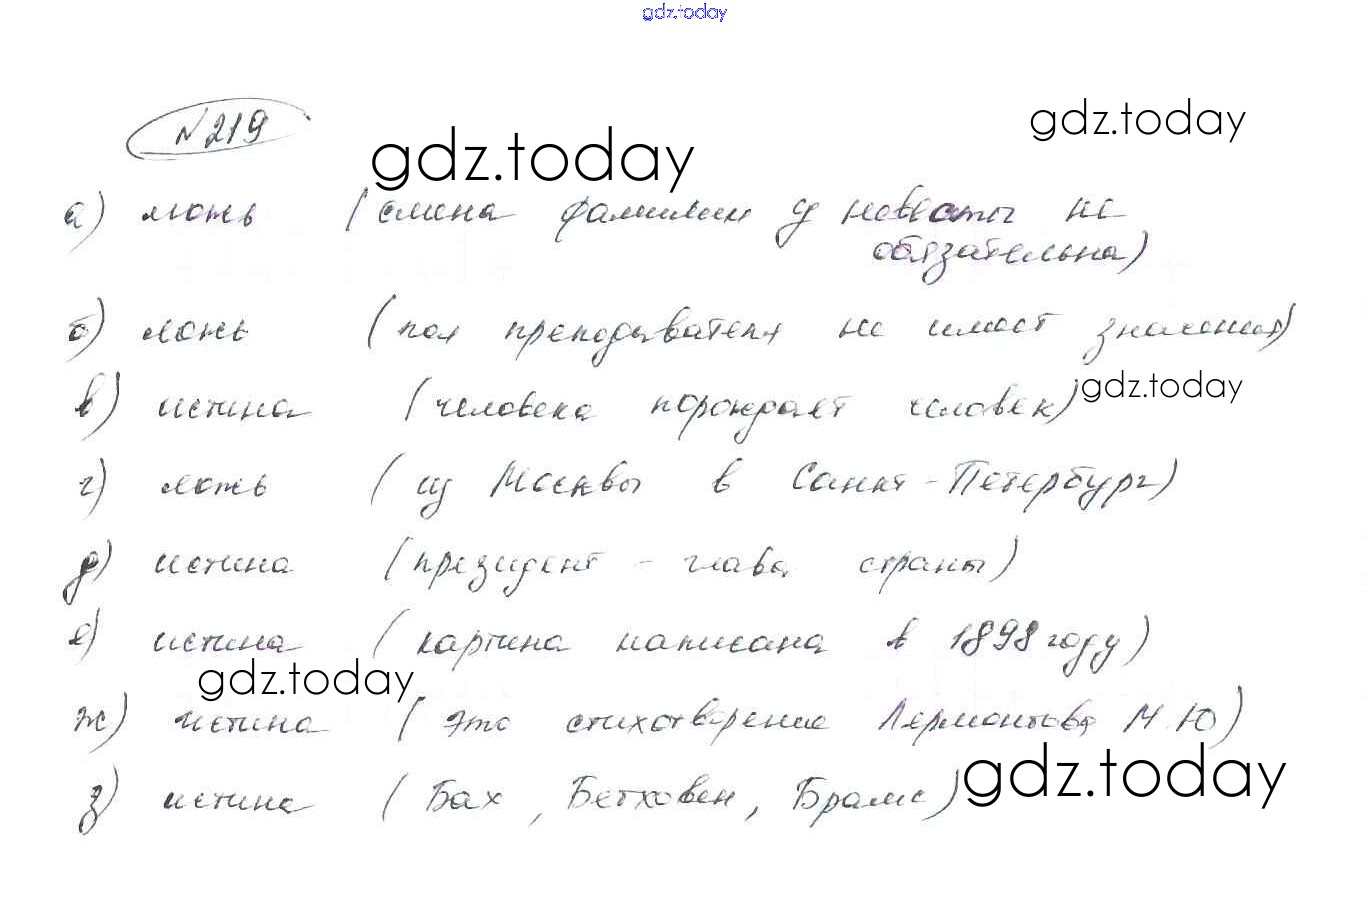 gdz.today
№219
gdz.today
gdz.today
а) ложь (смена фамилии у невесты не
обязательна)
б) ложь (пол преподавателя не имеет значения)
в) истина (человека порождает человек)
gdz.today
г) ложь (из Москвы в Санкт-Петербург)
д) истина (президент - глава страны)
е) истина (картина написана в 1898 году)
gdz.today
ж) истина (это стихотворение Лермонтова М.Ю)
з) истина (Бах, Бетховен, Брамс)
gdz.today